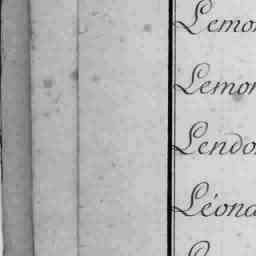 Lemon
Lemon
Lendo
Léona